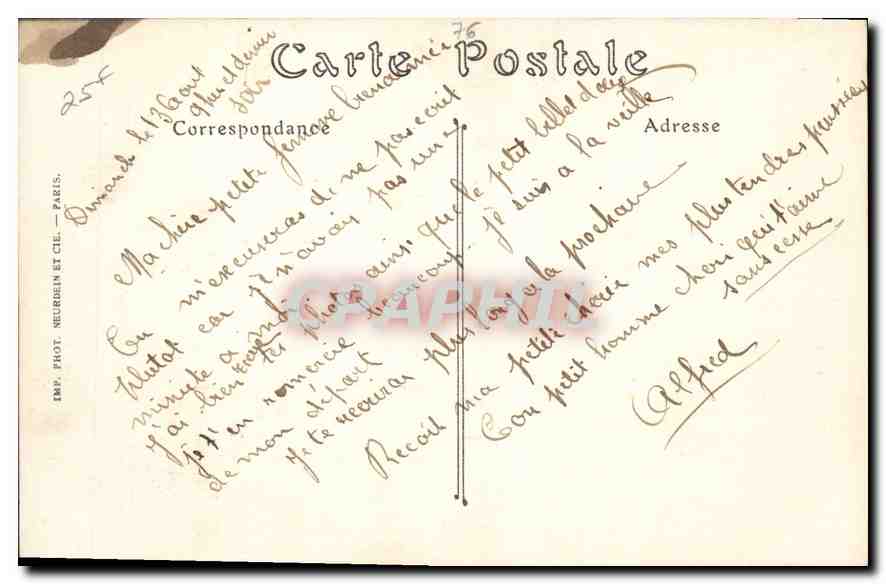 76
Carte Postale
25f
Correspondance
Adresse
Dimanche le 13 Aout
9 heures et demie
soir
Ma chère petite femme bien aimée
Tu m'excuseras de ne pas ecrit
plutot car je n'avais pas une
minute a moi
J'ai bien reçu tes photos ainsi que le petit billet doux
je t'en remercie beaucoup. je suis a la veille
de mon départ
Je te recrirai plus long a la prochaine
Recoit ma petite cherie mes plus tendres
Ton petit homme cheri qui t'aime
sans cesse
Alfred
IMP. PHOT. NEURDEIN ET CIE. — PARIS.
CPAPHIL